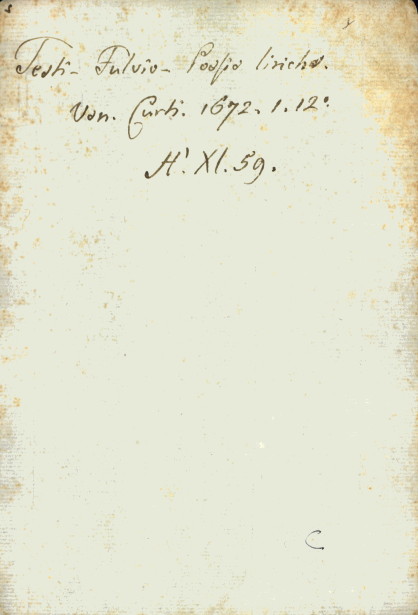 Testi - Fulvio - Poesie liriche.
Ven. Curti. 1672. 1. 12º.
A' XI. 59.
C